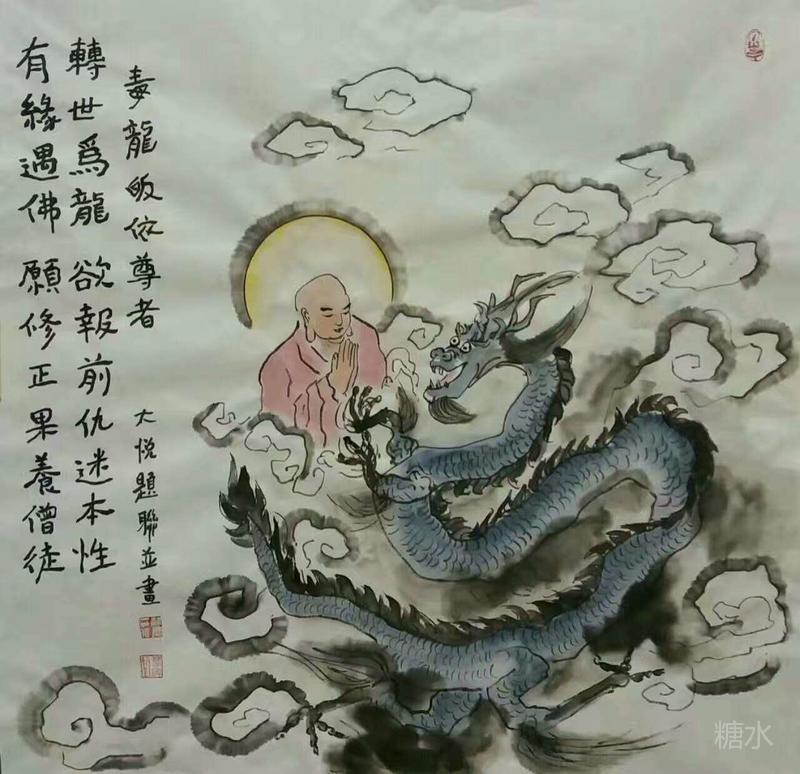 毒龍皈依尊者
轉世爲龍 欲報前仇迷本性
有緣遇佛 願修正果養僧徒
大悦題聯並畫
糖水